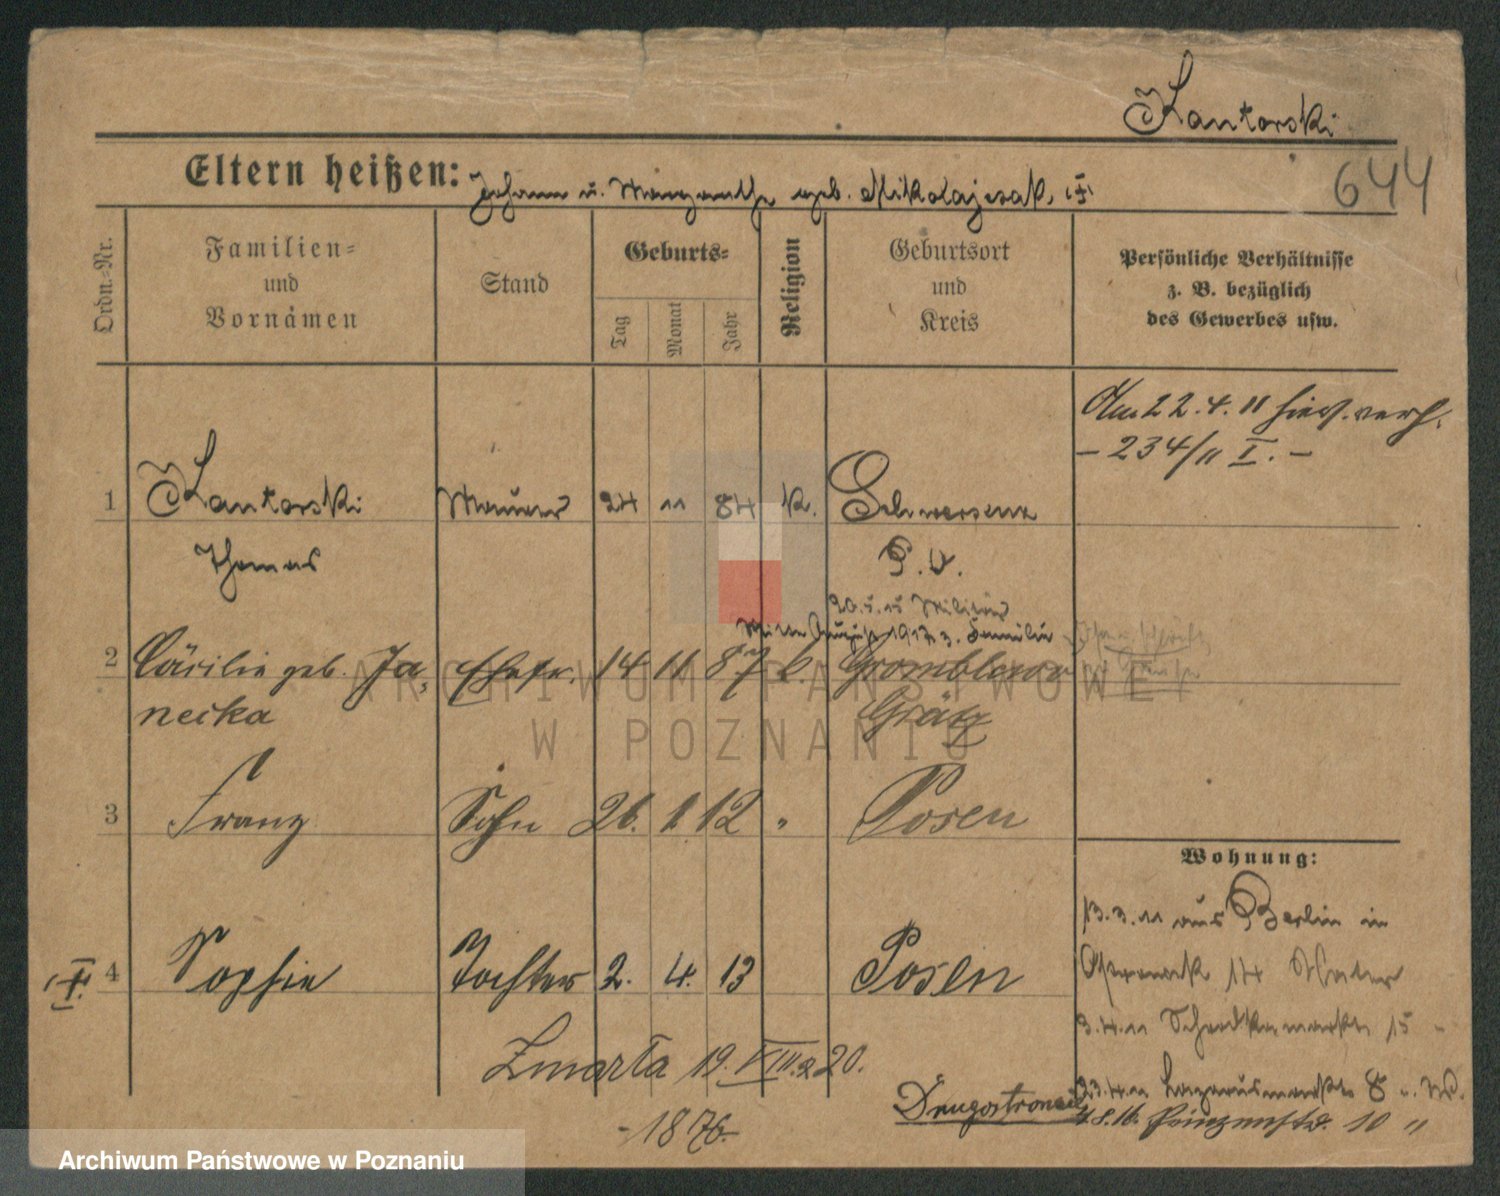 Kantorski
644
Eltern heißen: Johann u. Margarethe geb. Mikolajczak
Ordn.-Nr.
Familien-
und
Vornamen
Stand
Geburts-
Tag
Monat
Jahr
Religion
Geburtsort
und
Kreis
Persönliche Verhältnisse
z. B. bezüglich
des Gewerbes usw.
Am 22.4.11 hier. verh.
- 234/11 I. -
1 Kantorski Maurer 24 11 84 k. Schwersenz
Thomas P. O.
20.5.15 Militär
Mitte August 1917 z. Familie
2 Cäcilie geb. Ja- Ehefr. 14 11 87 k. Gromblewo
necka Grätz
3 Franz Sohn 26. 1. 12 " Posen
Wohnung:
13.3.11 aus Berlin in
14
4 Sophie Tochter 2. 4. 13 Posen
3.4.11 15 "
Zmarła 19. VIII. 20.
23.4.11 Lazarusmarkt 8
Drugostronie
4.8.16. Prinzenstr. 10 "
- 1876 -
ARCHIWUM PAŃSTWOWE
W POZNANIU
Archiwum Państwowe w Poznaniu